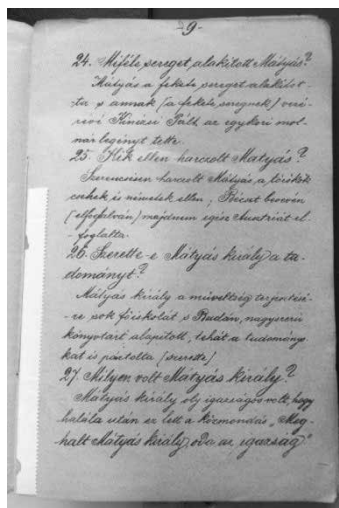 - 9 -
24. Miféle sereget alakított Mátyás?
Mátyás a fekete sereget alakítot-
ta s annak (a fekete seregnek) vezé-
révé Kinizsi Pált, az egykori mol-
nárlegényt tette.
25. Kik ellen harcolt Mátyás?
Szerencsésen harcolt Mátyás a törökök
csehek és németek ellen, Bécset bevevén
(elfoglalván) majdnem egész Austriát el-
foglalta.
26. Szerette-e Mátyás király a tu-
dományt?
Mátyás király a műveltség terjesztésé-
re sok főiskolát s Budán, nagyszerű
könyvtárt alapított, tehát a tudományo-
kat is pártolta (szerette)
27. Milyen volt Mátyás király?
Mátyás király oly igazságos volt, hogy
halála után ez lett a közmondás „Meg-
halt Mátyás király, oda az igazság"